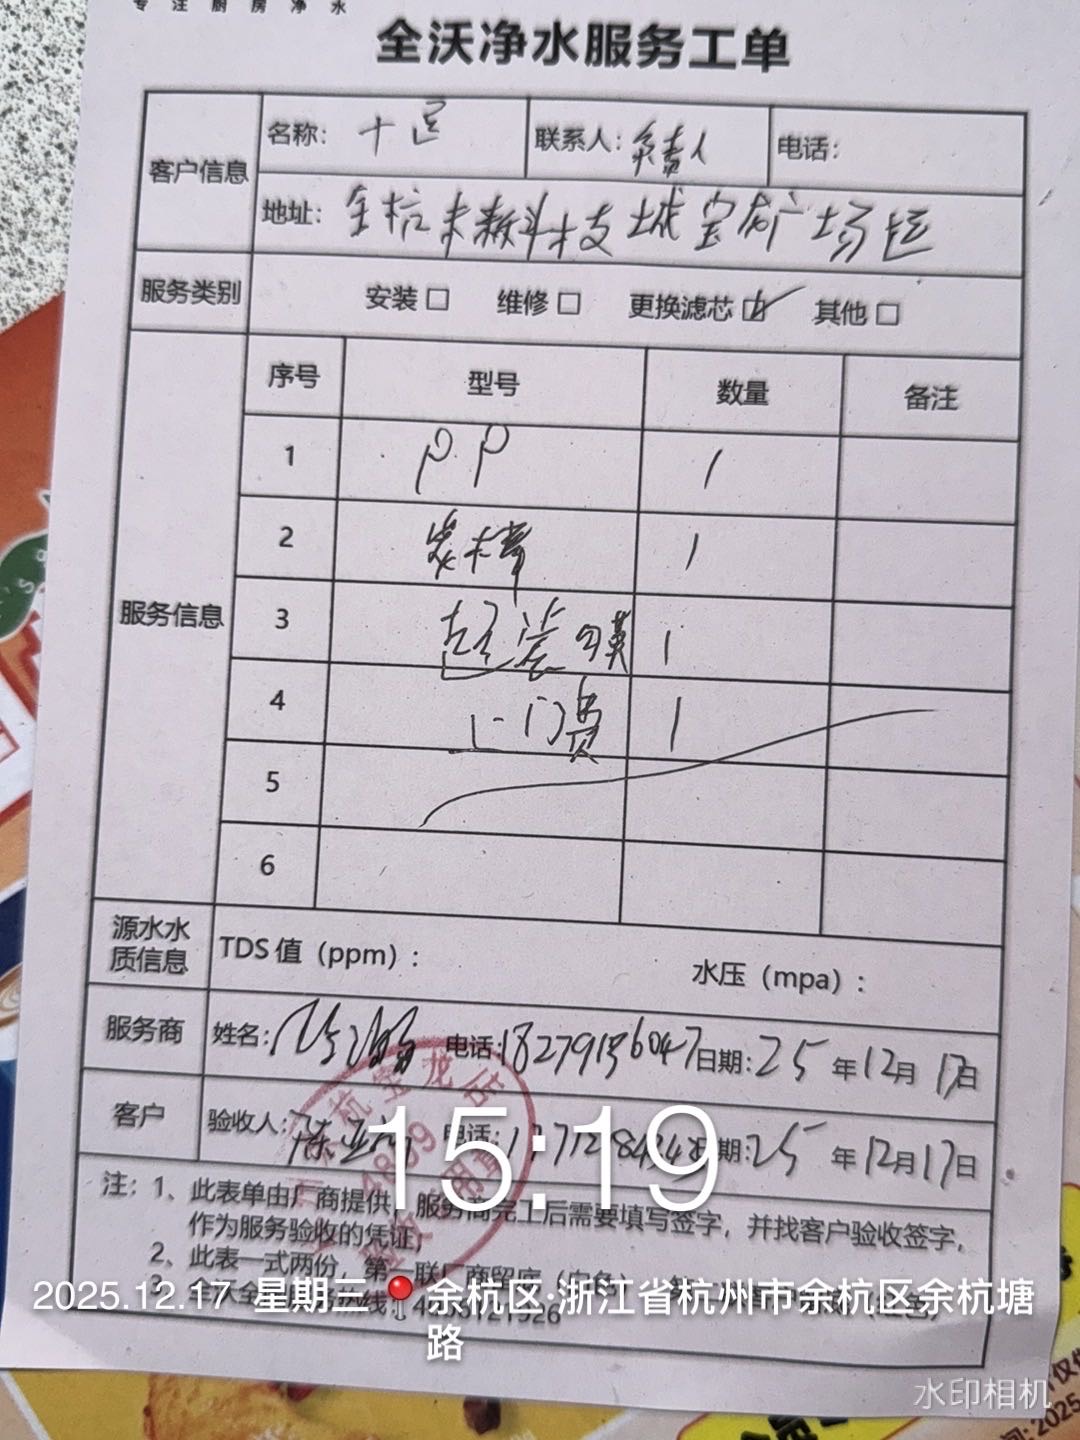 专注厨房净水
全沃净水服务工单
客户信息
名称:
联系人: 负责人
电话:
地址: 余杭未来科技城宝龙广场店
服务类别
安装□ 维修□ 更换滤芯☑ 其他□
服务信息
序号 型号 数量 备注
1 PP 1
2 炭棒 1
3 超滤膜 1
4 上门费 1
5
6
源水水质信息
TDS值（ppm）: 水压（mpa）:
服务商 姓名: 电话: 日期: 25年12月17日
客户 验收人: 电话: 日期: 25年12月17日
15:19
注: 1、此表单由厂商提供，服务商完工后需要填写签字，并找客户验收签字，
作为服务验收的凭证；
2、此表一式两份，第一联厂商留底
3、
2025.12.17 星期三 余杭区·浙江省杭州市余杭区余杭塘路
水印相机